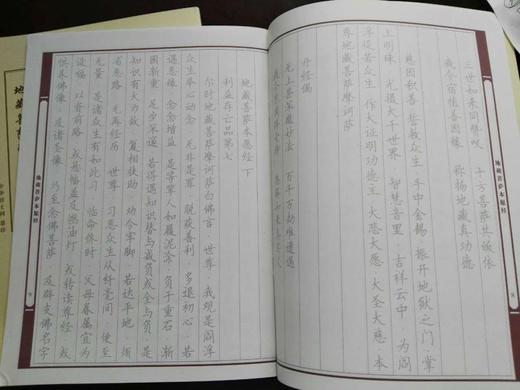 地藏菩萨本愿经
三世如来同赞叹 十方菩萨共皈依
我今宿植善因缘 称扬地藏真功德
慈因积善 誓救众生 手中金锡 振开地狱之门 掌
上明珠 光摄大千世界 智慧音里 吉祥云中 为阎
浮提苦众生 作大证明功德主 大悲大愿 大圣大慈 本
尊地藏菩萨摩诃萨
开经偈
无上甚深微妙法 百千万劫难遭遇
地藏菩萨本愿经 下
利益存亡品第七
尔时地藏菩萨摩诃萨白佛言 世尊 我观是阎浮
众生 举心动念 无非是罪 脱获善利 多退初心 若
遇恶缘 念念增益 是等辈人 如履泥涂 负于重石 渐
困渐重 足步深邃 若得遇知识 替与减负 或全与负 是
知识有大力故 复相扶助 劝令牢脚 若达平地 须
省恶路 无再经历 世尊 习恶众生 从纤毫间 便至
无量 是诸众生有如此习 临命终时 父母眷属 宜为
设福 以资前路 或悬幡盖及燃油灯 或转读尊经 或
供养佛像 及诸圣像 乃至念佛菩萨 及辟支佛名字
地藏菩萨本愿经